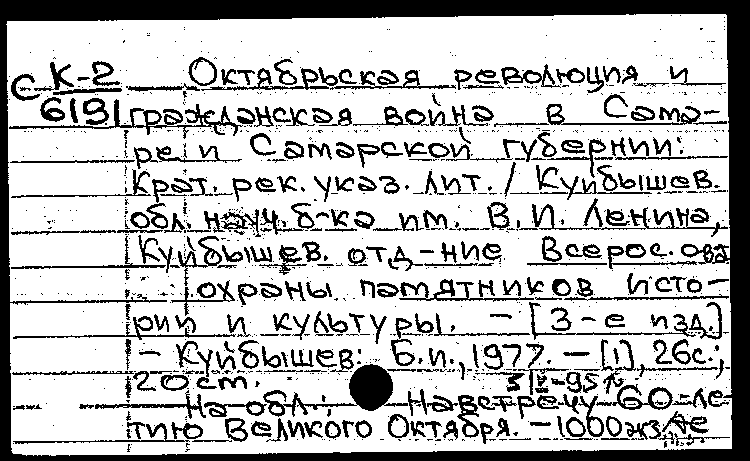 С К-2 Октябрьская революция и
6191 гражданская война в Сама-
ре и Самарской губернии:
Крат. рек. указ. лит. / Куйбышев.
обл. науч. б-ка им. В.И. Ленина,
Куйбышев. отд-ние Всерос. о-ва
охраны памятников исто-
рии и культуры. - [3-е изд.]
- Куйбышев: Б.и., 1977. - [1], 26с.;
20 см.
На обл.: Навстречу 60-ле-
тию Великого Октября. - 1000 экз.